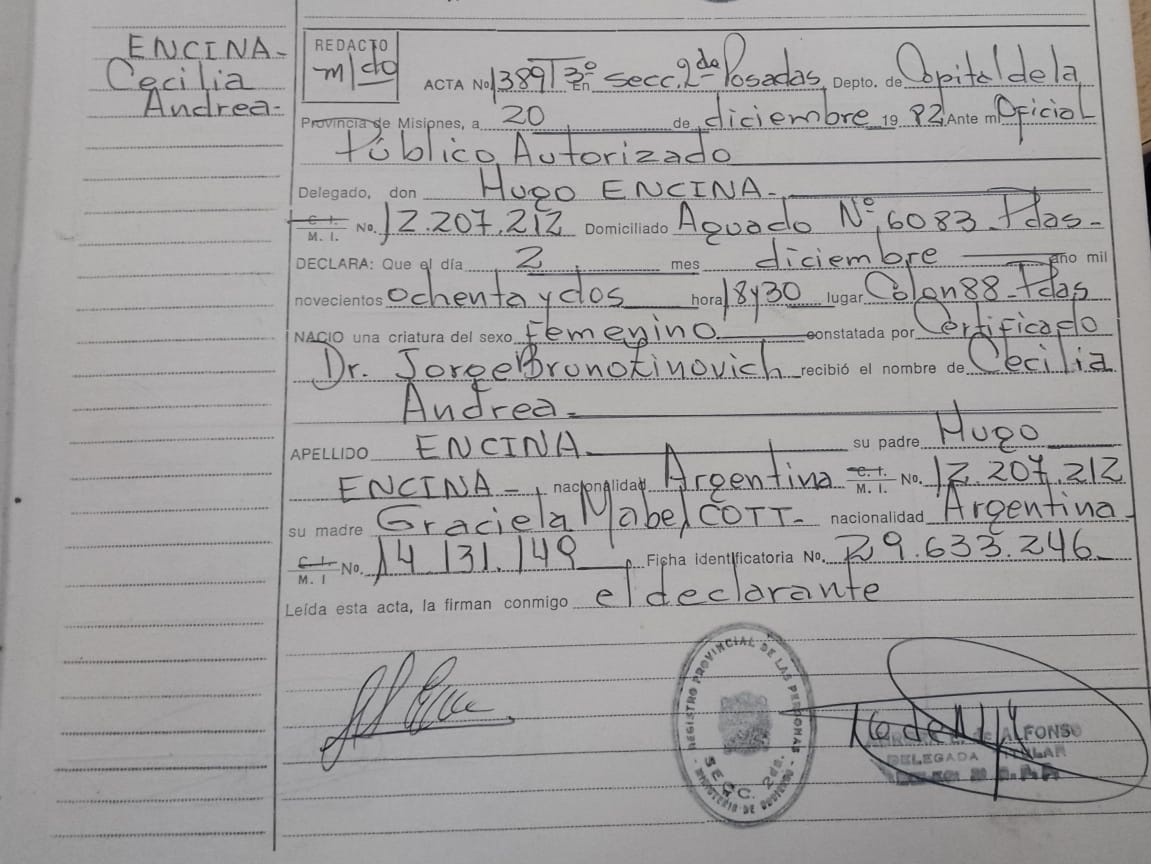 ENCINA-
Cecilia
Andrea-
REDACTO
m/do
ACTA No 1389 T3º En secc. 2da Posadas, Depto. de Capital de la
Provincia de Misiones, a 20 de diciembre 19 82 Ante mi Oficial
Público Autorizado
Delegado, don Hugo ENCINA-
C. I. M. I. No. 12.207.212 Domiciliado Aguado Nº 6083-Pdas-
DECLARA: Que el día 2 mes diciembre año mil
novecientos ochenta y dos hora 18y30 lugar Colon88-Pdas
NACIO una criatura del sexo Femenino constatada por Certificado
Dr. Jorge recibió el nombre de Cecilia
Andrea-
APELLIDO ENCINA- su padre Hugo
ENCINA-, nacionalidad Argentina C. I. M. I. No. 12.207.212
su madre Graciela Mabel COTT- nacionalidad Argentina-
C. I. M. I No. 14 131.149 Ficha identificatoria No. 29.633.246-
Leída esta acta, la firman conmigo el declarante
REGISTRO PROVINCIAL DE LAS PERSONAS
SECC. 2da.
MINISTERIO DE GOBIERNO
ALFONSO
DELEGADA TITULAR